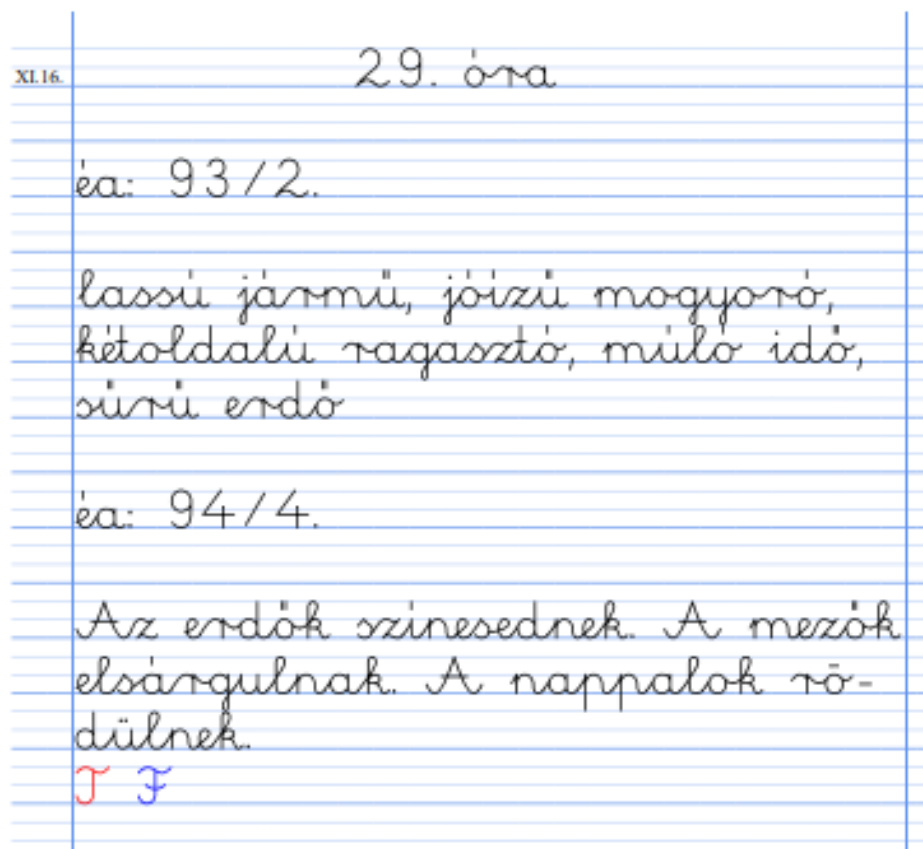 XI.16.
29. óra
éa: 93/2.
lassú jármű, jóízű mogyoró,
kétoldalú ragasztó, múló idő,
sűrű erdő
éa: 94/4.
Az erdők színesednek. A mezők
elsárgulnak. A nappalok rö-
dülnek.
T F